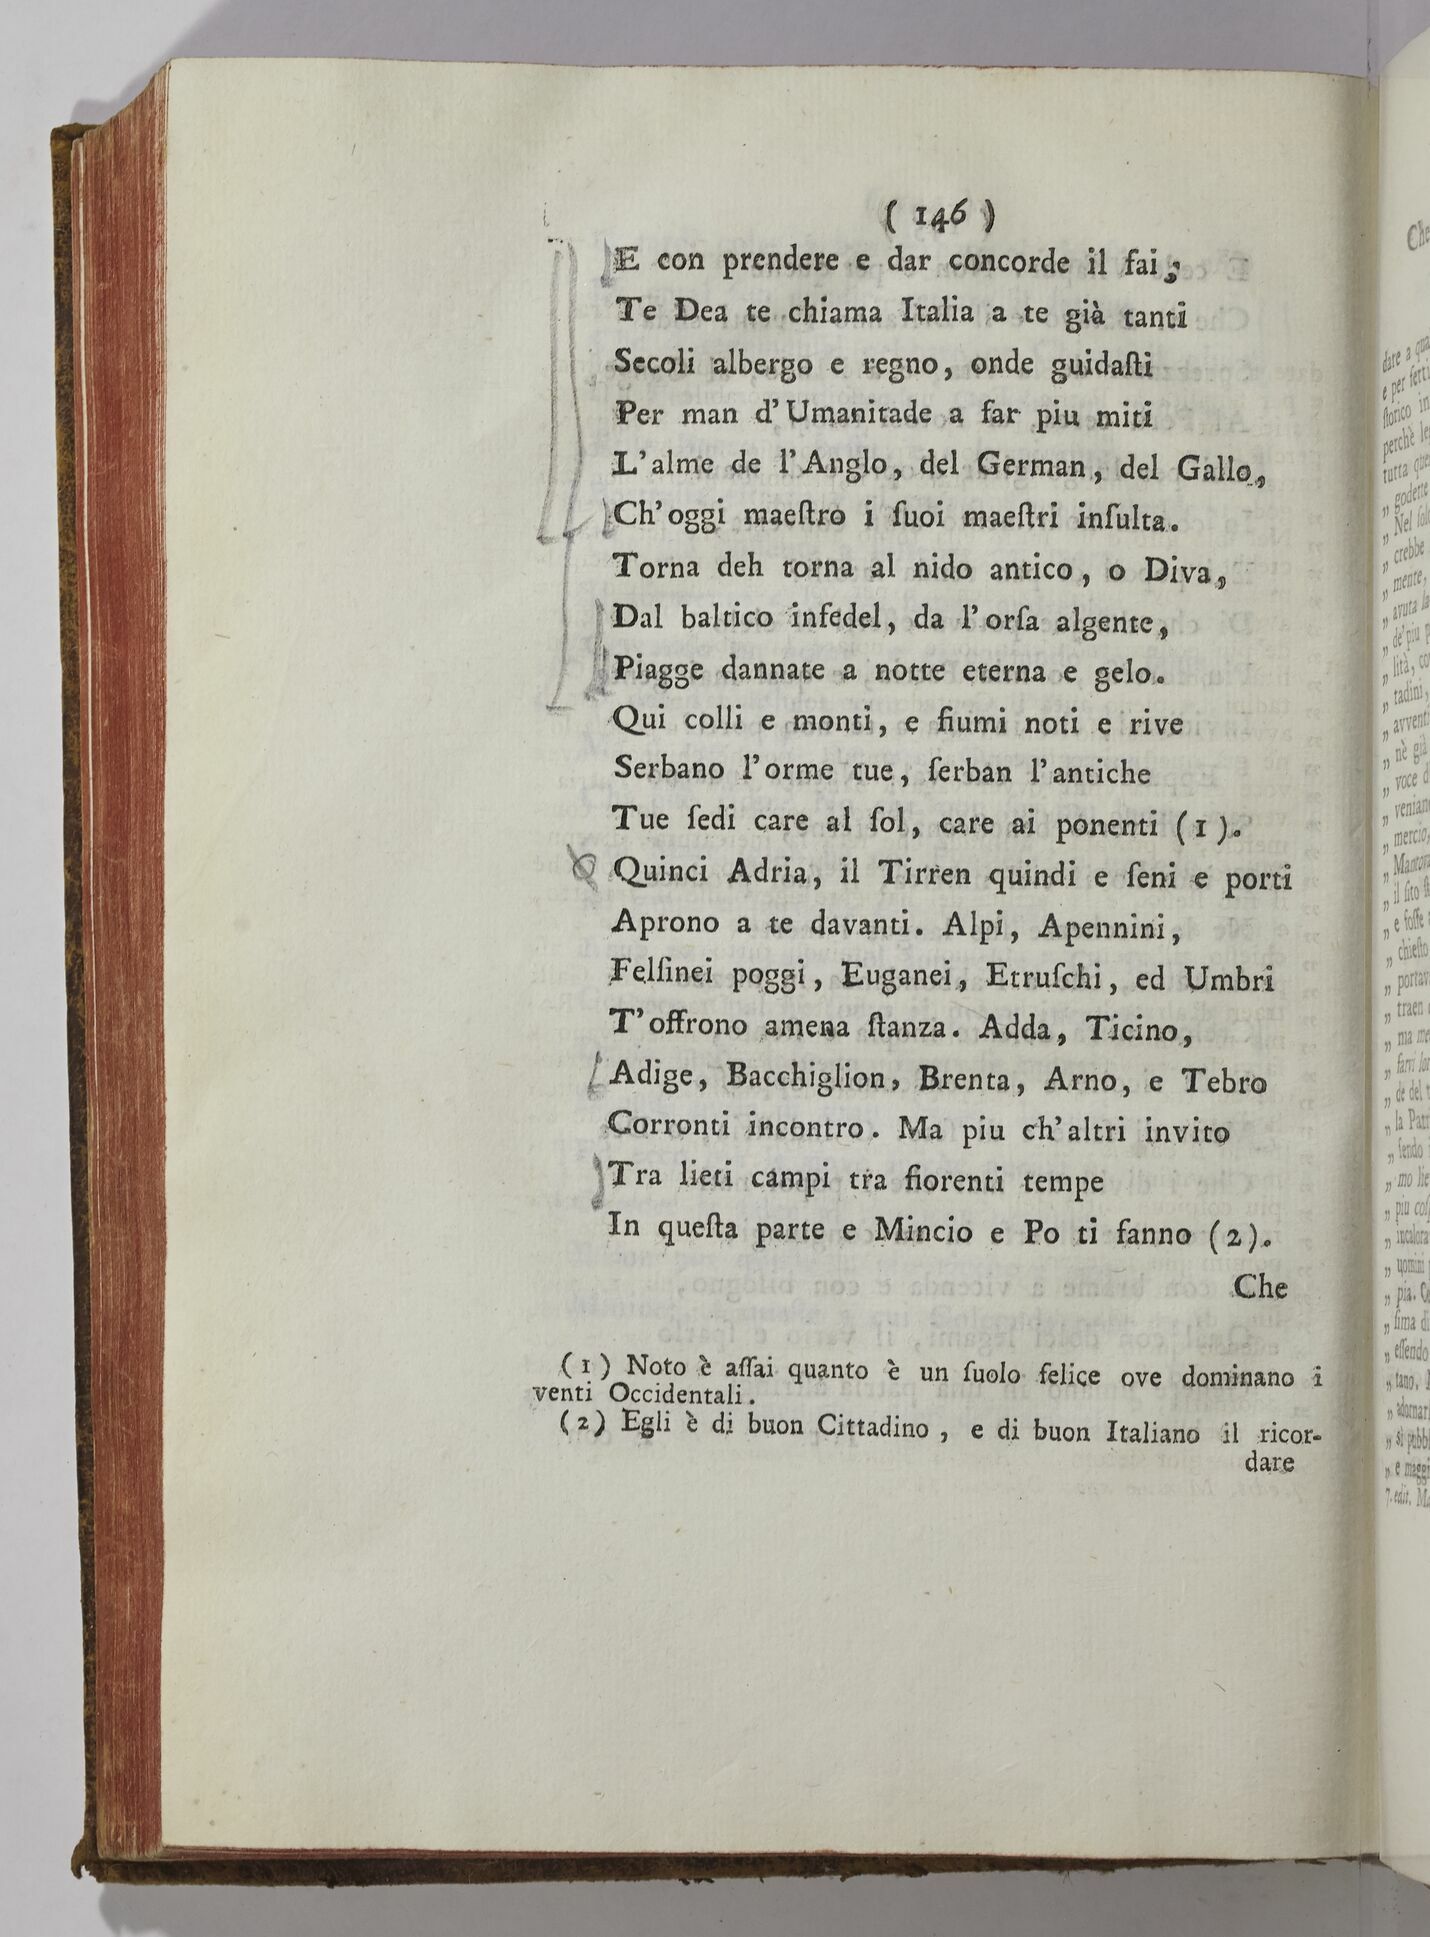 ( 146 )
E con prendere e dar concorde il fai;
Te Dea te chiama Italia a te già tanti
Secoli albergo e regno, onde guidaſti
Per man d'Umanitade a far piu miti
L'alme de l'Anglo, del German, del Gallo,
Ch'oggi maeſtro i ſuoi maeſtri inſulta.
Torna deh torna al nido antico, o Diva,
Dal baltico infedel, da l'orſa algente,
Piagge dannate a notte eterna e gelo.
Qui colli e monti, e fiumi noti e rive
Serbano l'orme tue, ſerban l'antiche
Tue ſedi care al ſol, care ai ponenti (1).
Quinci Adria, il Tirren quindi e ſeni e porti
Aprono a te davanti. Alpi, Apennini,
Felſinei poggi, Euganei, Etruſchi, ed Umbri
T'offrono amena ſtanza. Adda, Ticino,
Adige, Bacchiglion, Brenta, Arno, e Tebro
Corronti incontro. Ma piu ch'altri invito
Tra lieti campi tra fiorenti tempe
In queſta parte e Mincio e Po ti fanno (2).
Che
(1) Noto è aſſai quanto è un ſuolo felice ove dominano i
venti Occidentali.
(2) Egli è di buon Cittadino, e di buon Italiano il ricor-
dare
Che
dare a
e per
ſtorico in
perchè
tutta
„ godette
„ Nel
„ crebbe
„ mente,
„ avuta
„ de'piu
„ lità,
„ tadini,
„
„ nè già
„ voce
„
„ mercio,
„
„ il ſito
„ e foſſe
„ chieſto
„
„ traen
„ nia
„ farvi
„ de del
„ la
„ ſendo
„ mo
„ piu
„
„ uomini
„ pia.
„ ſima di
„ eſſendo
„ tano.
„
„ si
„ e
7. edit.